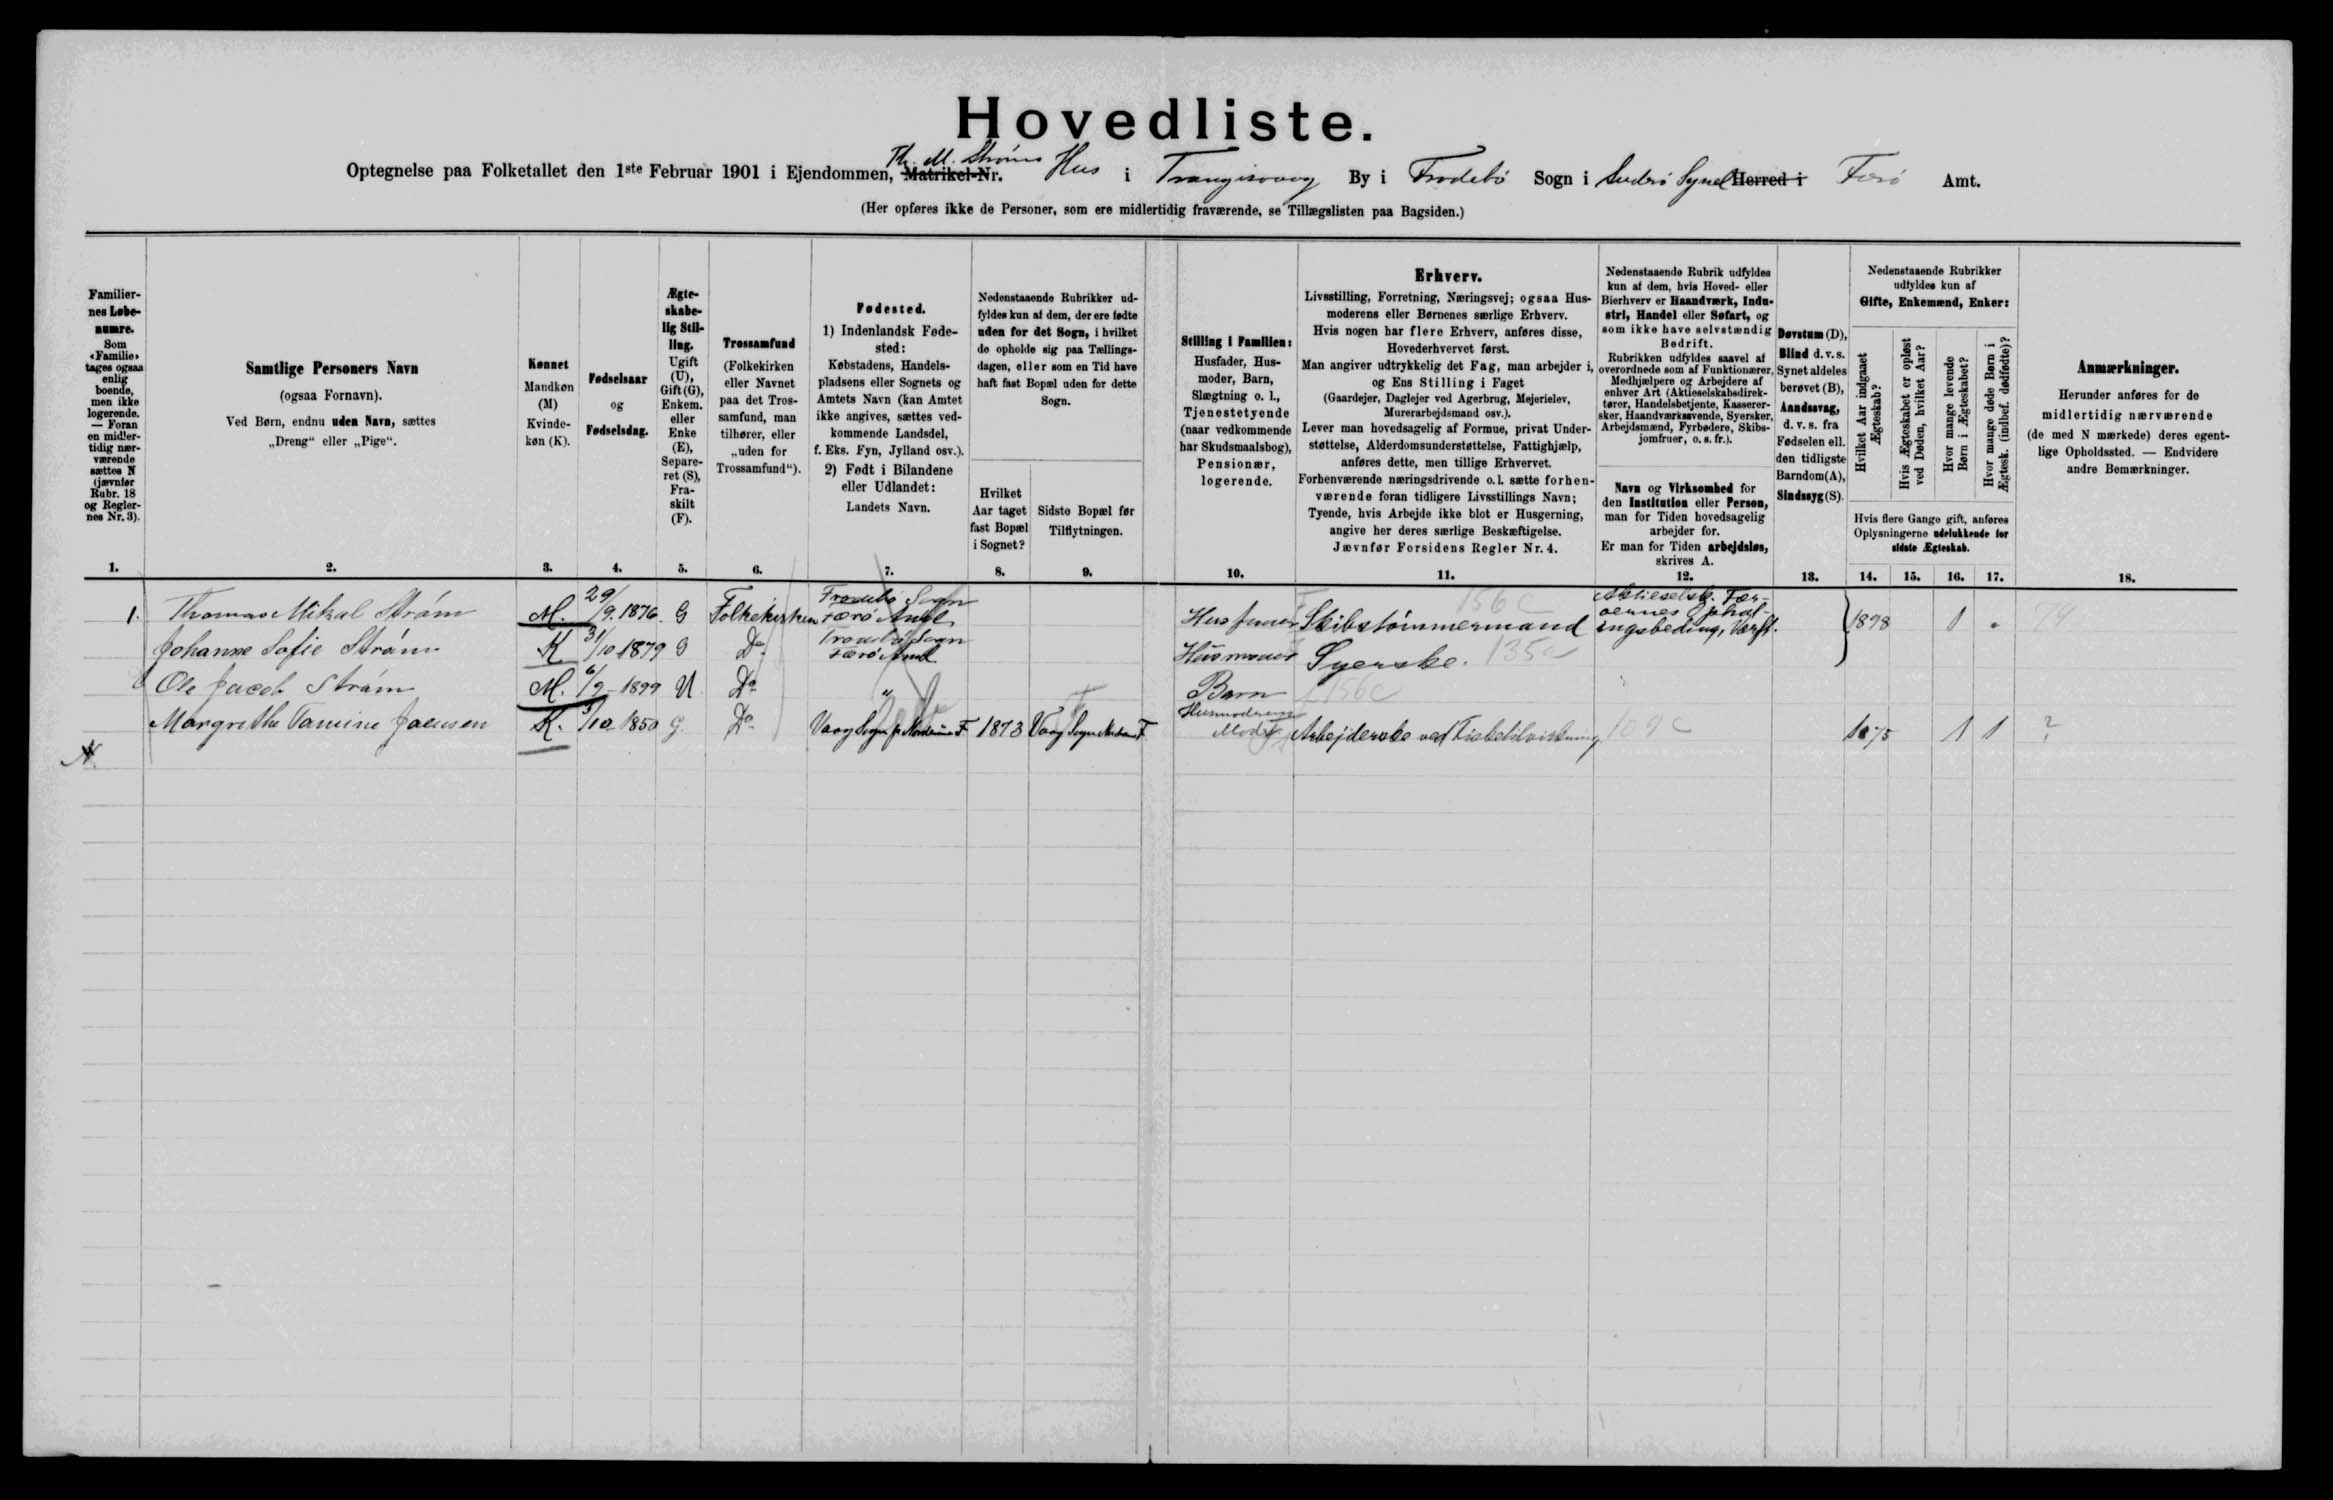 Hovedliste.
Optegnelse paa Folketallet den 1ste Februar 1901 i Ejendommen, Matrikel-Nr. Th. M. Stróms Hus i Trangisvaag By i Frodebö Sogn i Suderö Syssel Herred i Færö Amt.
(Her opføres ikke de Personer, som ere midlertidig fraværende, se Tillægslisten paa Bagsiden.)
Familier-
nes Løbe-
numre.
Som
«Familie»
tages ogsaa
enlig
boende,
men ikke
logerende.
— Foran
en midler-
tidig nær-
værende
sættes N
(jævnfør
Rubr. 18
og Regler-
nes Nr. 3).
1.
Samtlige Personers Navn
(ogsaa Fornavn).
Ved Børn, endnu uden Navn, sættes
„Dreng“ eller „Pige“.
2.
Kønnet
Mandkøn
(M)
Kvinde-
køn (K).
3.
Fødselsaar
og
Fødselsdag.
4.
Ægte-
skabe-
lig Stil-
ling.
Ugift
(U),
Gift (G),
Enkem.
eller
Enke
(E),
Separe-
ret (S),
Fra-
skilt
(F).
5.
Trossamfund
(Folkekirken
eller Navnet
paa det Tros-
samfund, man
tilhører, eller
„uden for
Trossamfund“).
6.
Fødested.
1) Indenlandsk Føde-
sted:
Købstadens, Handels-
pladsens eller Sognets og
Amtets Navn (kan Amtet
ikke angives, sættes ved-
kommende Landsdel,
f. Eks. Fyn, Jylland osv.).
2) Født i Bilandene
eller Udlandet:
Landets Navn.
7.
Nedenstaaende Rubrikker ud-
fyldes kun af dem, der ere fødte
uden for det Sogn, i hvilket
de opholde sig paa Tællings-
dagen, eller som en Tid have
haft fast Bopæl uden for dette
Sogn.
Hvilket
Aar taget
fast Bopæl
i Sognet?
8.
Sidste Bopæl før
Tilflytningen.
9.
Stilling i Familien:
Husfader, Hus-
moder, Barn,
Slægtning o. l.,
Tjenestetyende
(naar vedkommende
har Skudsmaalsbog),
Pensionær,
logerende.
10.
Erhverv.
Livsstilling, Forretning, Næringsvej; ogsaa Hus-
moderens eller Børnenes særlige Erhverv.
Hvis nogen har flere Erhverv, anføres disse,
Hovederhvervet først.
Man angiver udtrykkelig det Fag, man arbejder i,
og Ens Stilling i Faget
(Gaardejer, Daglejer ved Agerbrug, Mejerielev,
Murerarbejdsmand osv.).
Lever man hovedsagelig af Formue, privat Under-
støttelse, Alderdomsunderstøttelse, Fattighjælp,
anføres dette, men tillige Erhvervet.
Forhenværende næringsdrivende o.l. sætte forhen-
værende foran tidligere Livsstillings Navn;
Tyende, hvis Arbejde ikke blot er Husgerning,
angive her deres særlige Beskæftigelse.
Jævnfør Forsidens Regler Nr. 4.
11.
Nedenstaaende Rubrik udfyldes
kun af dem, hvis Hoved- eller
Bierhverv er Haandværk, Indu-
stri, Handel eller Søfart, og
som ikke have selvstændig
Bedrift.
Rubrikken udfyldes saavel af
overordnede som af Funktionærer,
Medhjælpere og Arbejdere af
enhver Art (Aktieselskabsdirek-
tører, Handelsbetjente, Kasserer-
sker, Haandværkssvende, Syersker,
Arbejdsmænd, Fyrbødere, Skibs-
jomfruer, o. s. fr.).
Navn og Virksomhed for
den Institution eller Person,
man for Tiden hovedsagelig
arbejder for.
Er man for Tiden arbejdsløs,
skrives A.
12.
Døvstum (D),
Blind d. v. s.
Synet aldeles
berøvet (B),
Aandssvag,
d. v. s. fra
Fødselen ell.
den tidligste
Barndom (A),
Sindssyg (S).
13.
Nedenstaaende Rubrikker
udfyldes kun af
Gifte, Enkemænd, Enker:
Hvilket Aar indgaaet
Ægteskab?
Hvis Ægteskabet er opløst
ved Døden, hvilket Aar?
Hvor mange levende
Børn i Ægteskabet?
Hvor mange døde Børn i
Ægtesk. (indbef. dødfødte)?
Hvis flere Gange gift, anføres
Oplysningerne udelukkende for
sidste Ægteskab.
14. 15. 16. 17.
Anmærkninger.
Herunder anføres for de
midlertidig nærværende
(de med N mærkede) deres egent-
lige Opholdssted. — Endvidere
andre Bemærkninger.
18.
1. Thomas Mikal Stróm M. 29/9. 1876. G Folkekirken Frodebö Sogn Færö Amt Husfader Skibstömmermand 156 C Aktieselsk. Fær-oernes Ophal-ingsbeding, Værft. 1898 1 " 74
Johanne Sofie Stróm K 31/10 1879 G Do Frodebö Sogn Færö Amt Husmoder Syerske. 135
Ole Jacob Stróm M. 6/9 - 1899 U Do " Barn f 156 C
Margrethe Tamine Joensen K. 3/10 1850 G. Do Vaag Sogn F 1873 Vaag Sogn F Husmoderens Moder Arbejderske ved Fisketilvirkning 109 C 1875 1 1 ?
N.